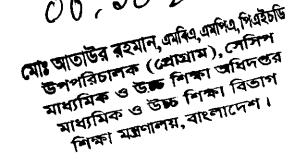 মোঃ আতাউর রহমান, এমবিএ, এমপিএ, পিএইচডি
উপপরিচালক (প্রোগ্রাম), সেসিপ
মাধ্যমিক ও উচ্চ শিক্ষা অধিদপ্তর
মাধ্যমিক ও উচ্চ শিক্ষা বিভাগ
শিক্ষা মন্ত্রণালয়, বাংলাদেশ।